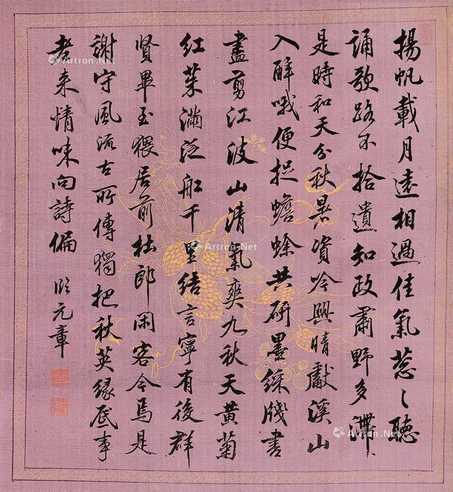 揚帆載月遠相過佳氣蔥〻聽
誦歌路不拾遺知政肅野多滯
是時和天分秋暑資吟興晴獻溪山
入醉哦便捉蟾蜍共研墨綵牋書
盡剪江波山清氣爽九秋天黃菊
紅茱滿泛船千里結言寧有後群
賢畢至猥居前杜郎閑客今焉是
謝守風流古所傳獨把秋英緣底事
老來情味向詩偏 臨元章
Artron.Net